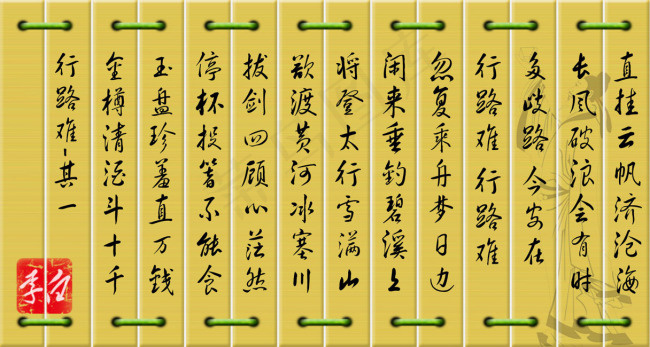 行路难-其一
金樽清酒斗十千
玉盘珍羞直万钱
停杯投箸不能食
拔剑四顾心茫然
欲渡黄河冰塞川
将登太行雪满山
闲来垂钓碧溪上
忽复乘舟梦日边
行路难 行路难
多歧路 今安在
长风破浪会有时
直挂云帆济沧海